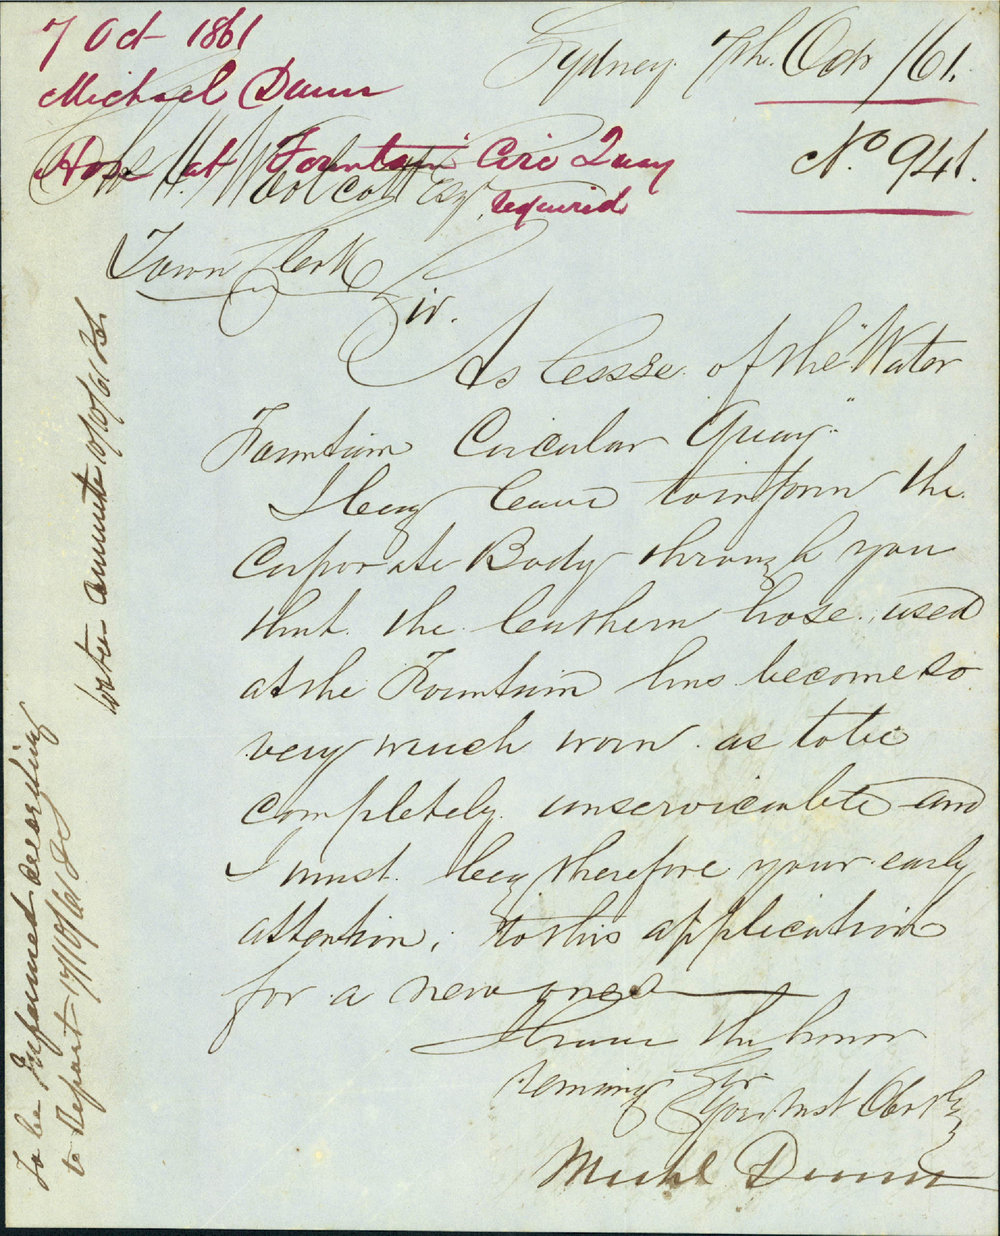 7 Oct 1861
Michael Dunn
Hose at Fountain Circ Quay
required
Sydney. 7th. Octr /61.
No 941.
H. Woolcott Esqr
Town Clerk
Sir.
As lessee of the "Water
Fountain Circular Quay."
I beg leave to inform the
Corporate Body through you
that the leathern hose, used
at the Fountain has become so
very much worn as to be
completely unserviceable and
I must beg therefore your early
attention, to this application
for a new one
I have the honor
remaing Sir
Your Most Obt
Michl Dunn
Water Committee 10/10/61
To be Informed according
to Report 17/10/61